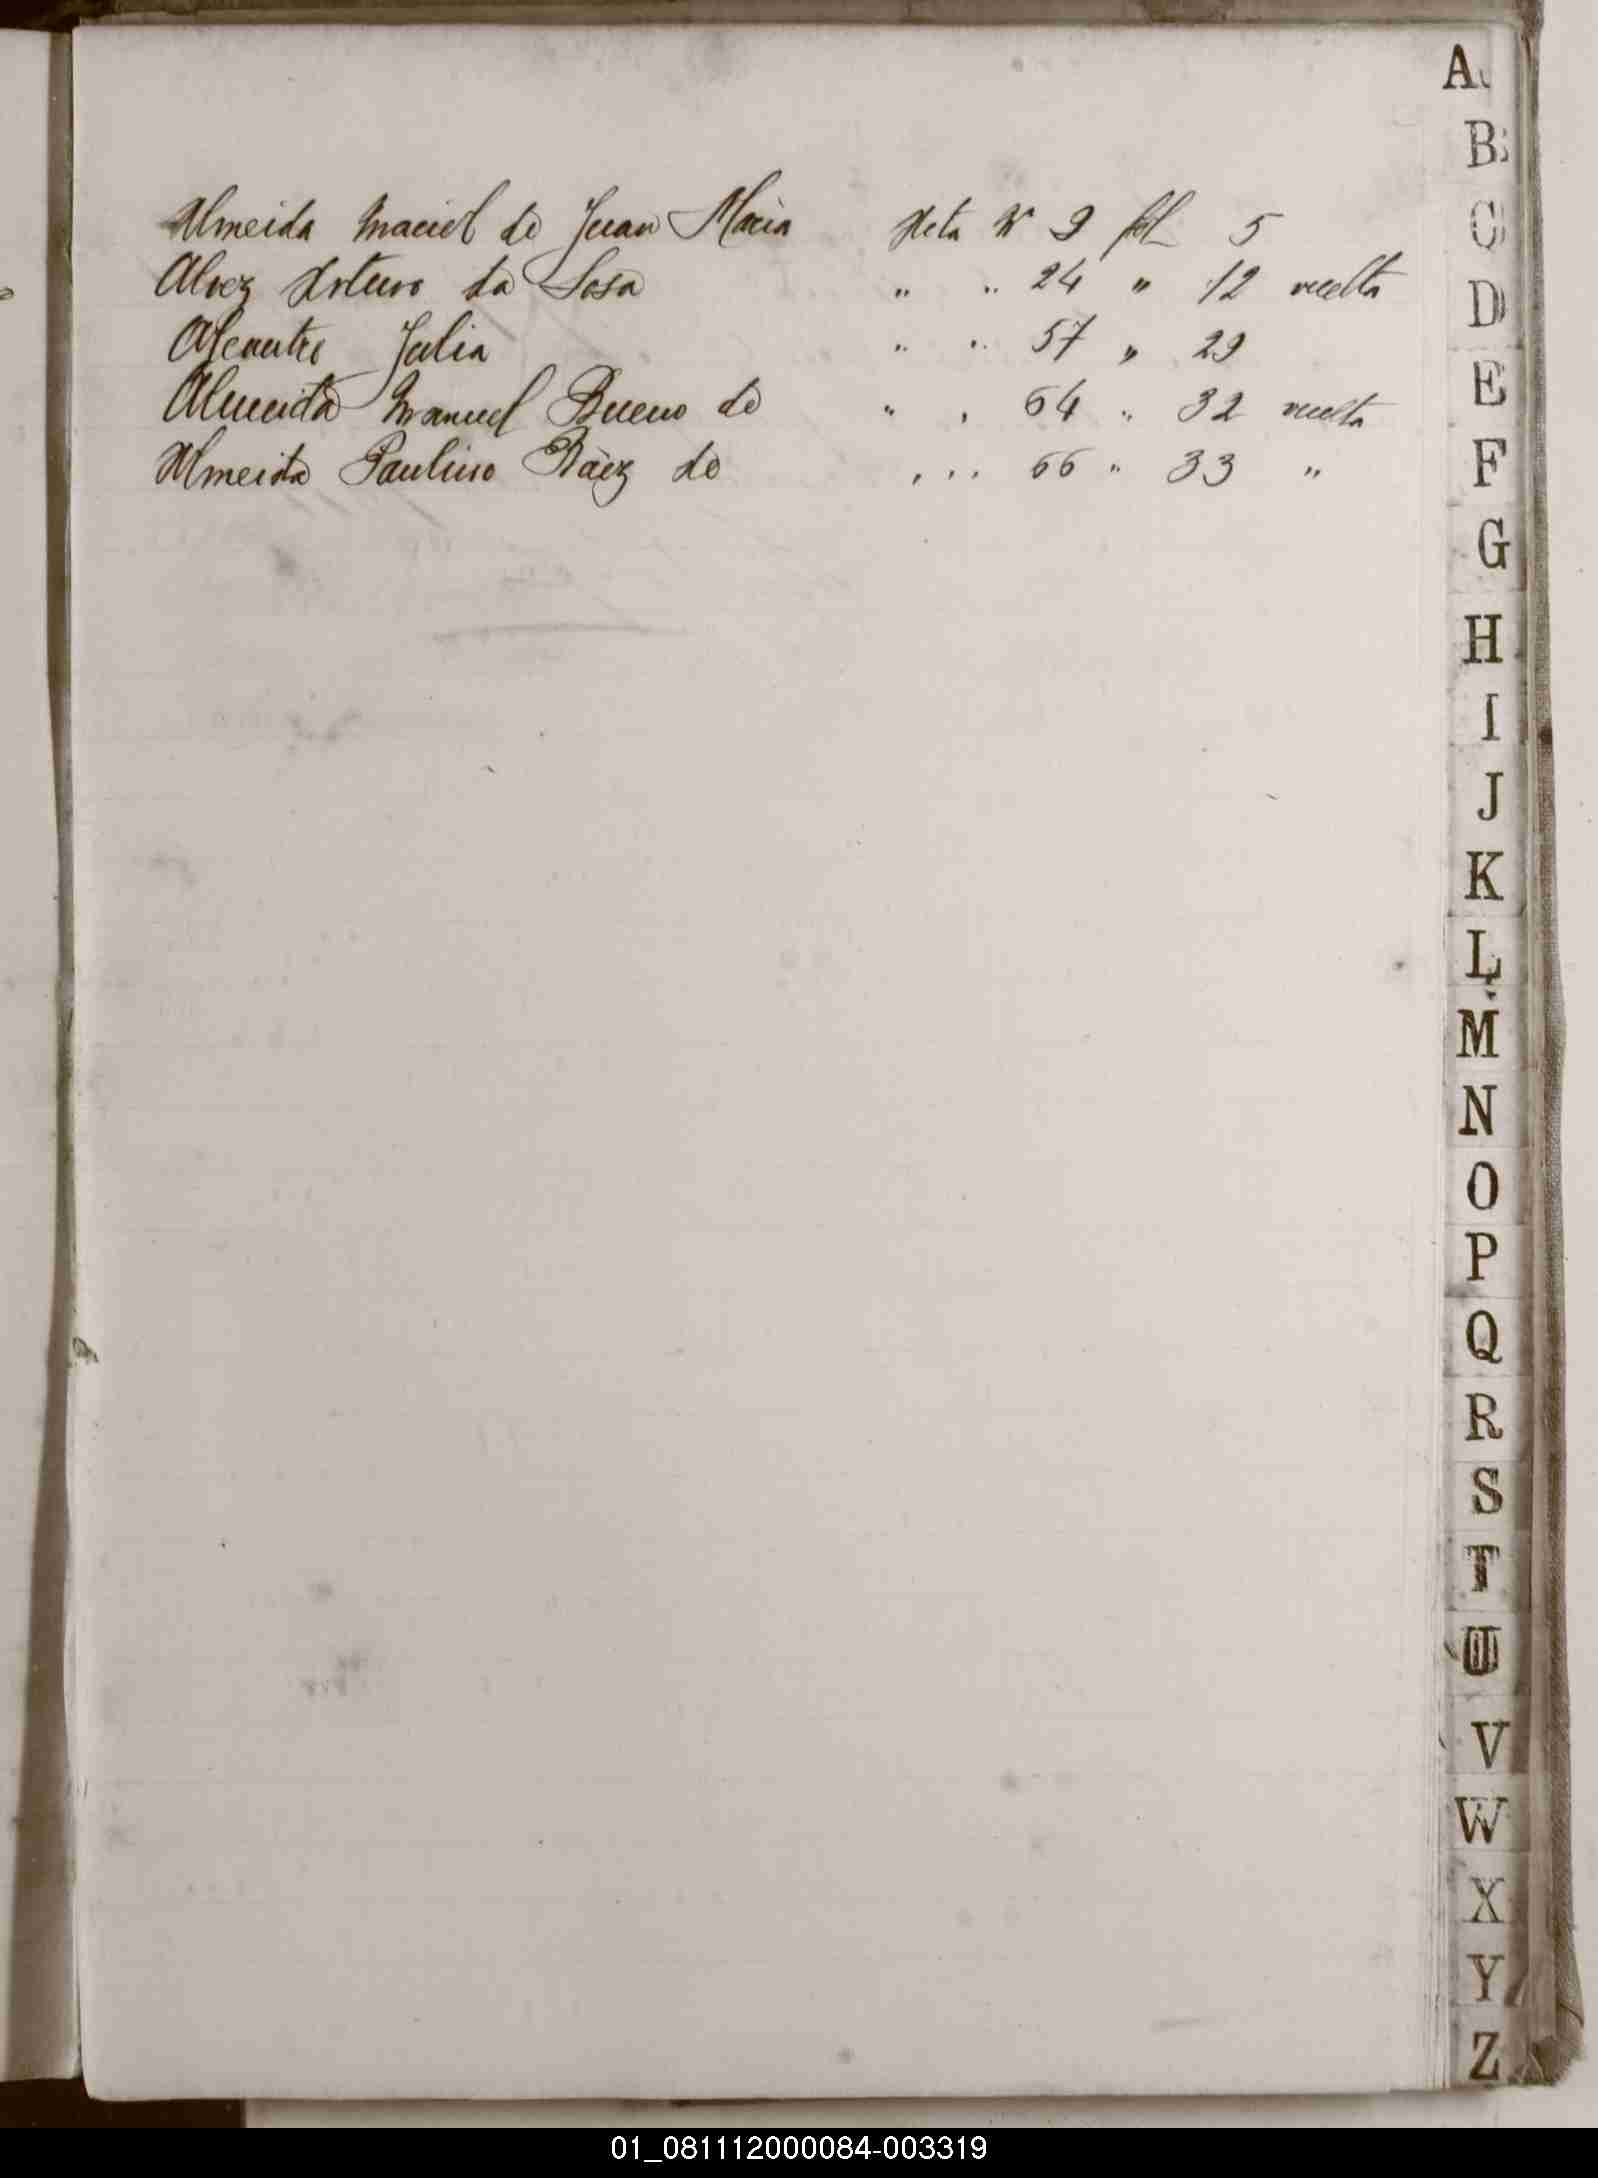 Almeida Maciel de Juan María Acta Nº 9 fol 5
Alvez Arturo da Sosa " " 24 " 12 vuelta
Julia " " 57 " 29
Almeida Manuel Bueno de " " 64 " 32 vuelta
Almeida Paulino Báez de " " 66 " 33 "
A
B
C
D
E
F
G
H
I
J
K
L
M
N
O
P
Q
R
S
T
U
V
W
X
Y
Z
01_081112000084-003319